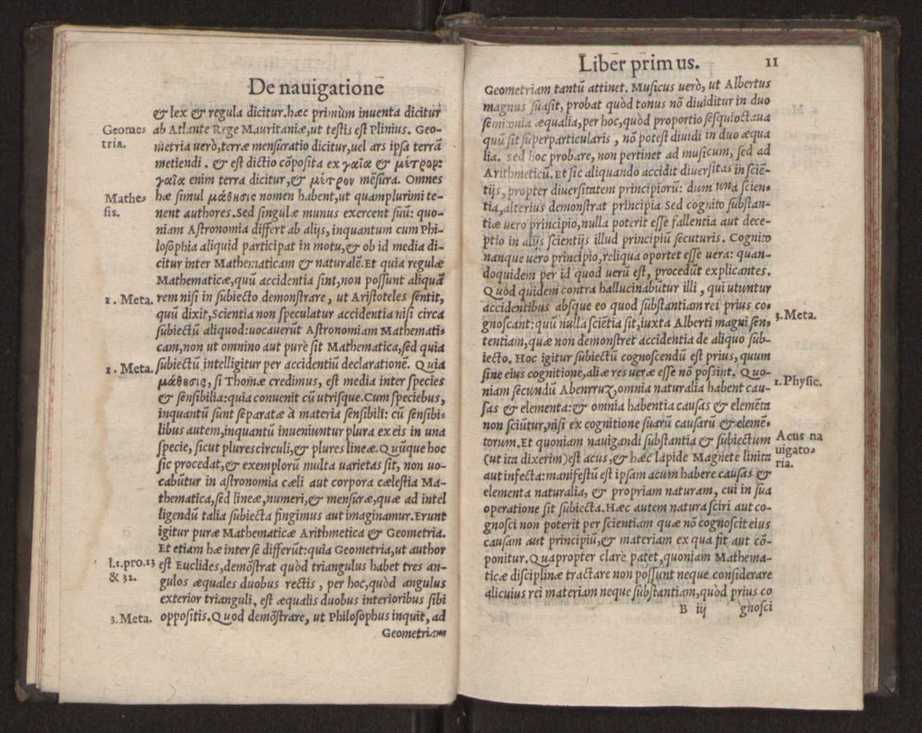 De nauigationē
& lex & regula dicitur.hæc primùm inuenta dicitur
Geome-
tria.
ab Atlante Rege Mauritaniæ,ut testis est Plinius. Geo-
metria verò,terræ mensuratio dicitur,uel ars ipsa terrā
metiendi. & est dictio cōposita ex γαῖα & μέτρον:
γαῖα enim terra dicitur,& μέτρον mēsura. Omnes
Mathe-
sis.
hæ simul μάθησις nomen habent,ut quamplurimi te-
nent authores.Sed singulæ munus exercent suū: quo-
niam Astronomia differt ab alijs,inquantum cum Phi-
losophia aliquid participat in motu,& ob id media di-
citur inter Mathematicam & naturalē.Et quia regulæ
Mathematicæ,quū accidentia sint,non possunt aliquā
2. Meta.
rem nisi in subiecto demonstrare, ut Aristoteles sentit,
quū dixit,Scientia non speculatur accidentia nisi circa
subiectū aliquod:uocauerūt Astronomiam Mathemati-
cam,non ut omnino aut purè sit Mathematica,sed quia
1. Meta.
subiectū intelligitur per accidentiū declarationē. Quia
μάθησις, si Thomæ credimus, est media inter species
& sensibilia:quia conuenit cū utrisque.Cum speciebus,
inquantū sunt separatæ à materia sensibili: cū sensibi-
libus autem,inquantū inueniuntur plura ex eis in una
specie, sicut plures circuli,& plures lineæ.Quūque hoc
sic procedat,& exemplorū multa varietas sit, non uo-
cabūtur in astronomia cæli aut corpora cælestia Ma-
thematica,sed lineæ,numeri,& mensuræ,quæ ad intel
ligendū talia subiecta fingimus aut imaginamur.Erunt
igitur puræ Mathematicæ Arithmetica & Geometria.
Et etiam hæ inter se differūt:quia Geometria,ut author
l.1.pro.13
& 32.
est Euclides,demōstrat quòd triangulus habet tres an-
gulos æquales duobus rectis , per hoc,quòd angulus
exterior trianguli, est æqualis duobus interioribus sibi
3. Meta.
oppositis.Quod demōstrare, ut Philosophus inquit, ad
Geometriam
Liber primus. 11
Geometriam tantū attinet. Musicus verò, ut Albertus
magnus suasit, probat quòd tonus nō diuiditur in duo
semitonia æqualia,per hoc,quòd proportio sesquioctaua
quū sit superparticularis , nō potest diuidi in duo æqua
lia. sed hoc probare, non pertinet ad musicum, sed ad
Arithmeticū.Et sic aliquando accidit diuersitas in sciē-
tijs, propter diuersitatem principiorū: dum una scien-
tia,alterius demonstrat principia Sed cognito substan-
tiæ uero principio,nulla poterit esse fallentia aut dece-
ptio in alijs scientijs illud principiū secuturis. Cognito
nanque uero principio,reliqua oportet esse vera: quan-
doquidem per id quod verū est, procedūt explicantes.
Quòd quidem contra hallucinabūtur illi , qui utuntur
accidentibus absque eo quod substantiam rei prius co-
3. Meta.
gnoscant:quū nulla sciētia sit,iuxta Alberti magni sen-
tentiam,quæ non demonstret accidentia de aliquo sub-
iecto. Hoc igitur subiectū cognoscendū est prius, quum
sine eius cognitione,aliæ res veræ esse nō possint. Quo-
1.Physic.
niam secundū Abenrruz,omnia naturalia habent cau-
sas & elementa:& omnia habentia causas & elemēta
non sciūtur,nisi ex cognitione suarū causarū & elemē-
Acus na
uigato-
ria.
torum.Et quoniam nauigandi substantia & subiectum
(ut ita dixerim)est acus,& hæc lapide Magnete linita
aut infecta:manifestū est ipsam acum habere causas &
elementa naturalia, & propriam naturam, cui in sua
operatione sit subiecta.Hæc autem natura sciri aut co-
gnosci non poterit per scientiam quæ nō cognoscit eius
causam aut principiū,& materiam ex qua sit aut cō-
ponitur.Quapropter clarè patet,quoniam Mathema-
ticæ disciplinæ tractare non possunt neque considerare
alicuius rei materiam neque substantiam,quòd prius co
B iij gnosci